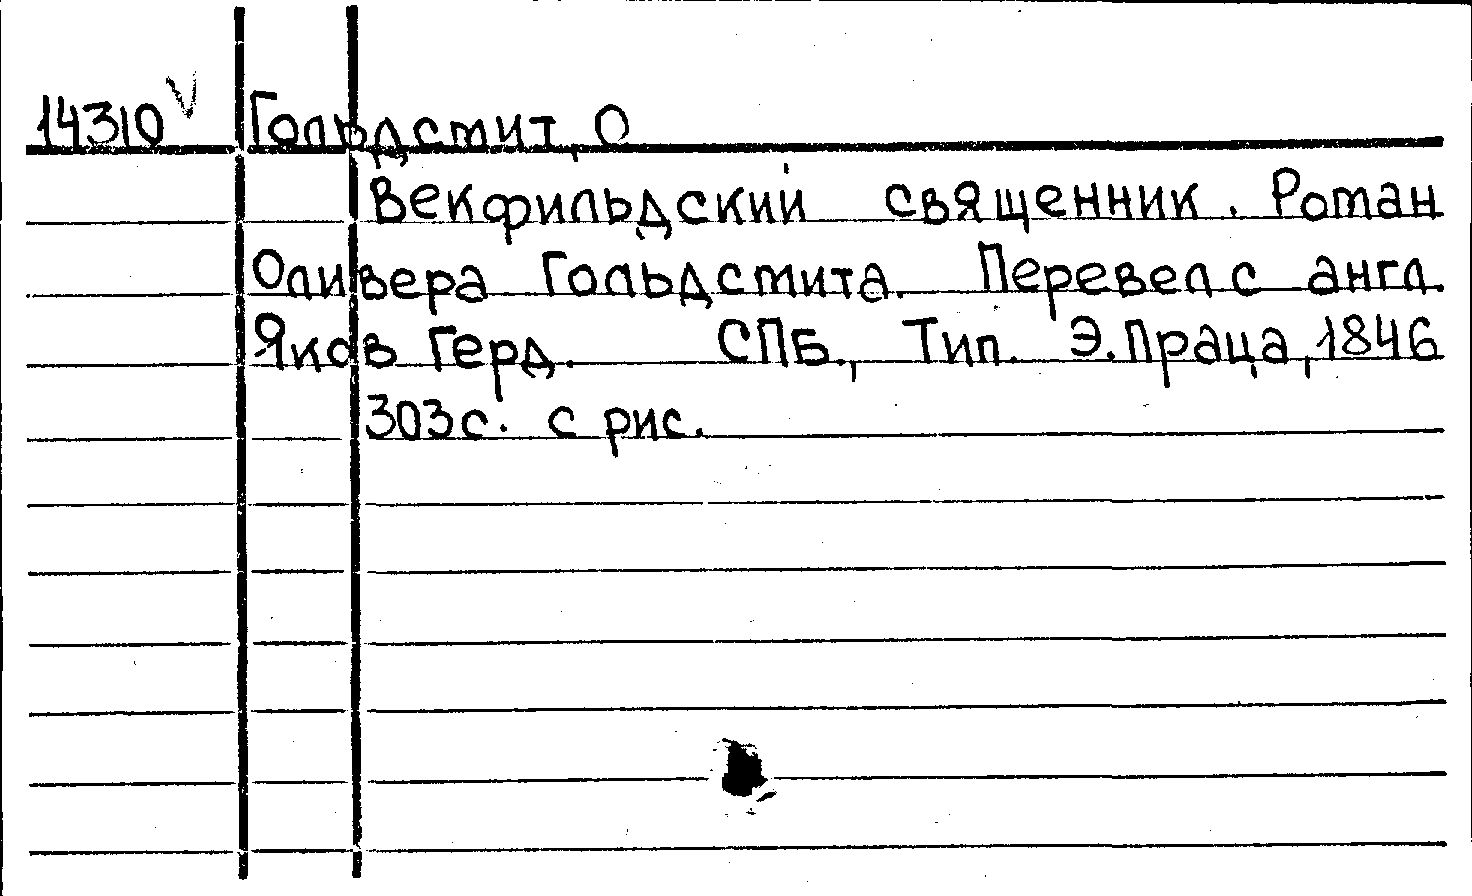 14310 V Гольдсмит, О
Векфильдский священник. Роман
Оливера Гольдсмита. Перевел с англ.
Яков Герд. СПБ., Тип. Э. Праца, 1846
303 с. с рис.